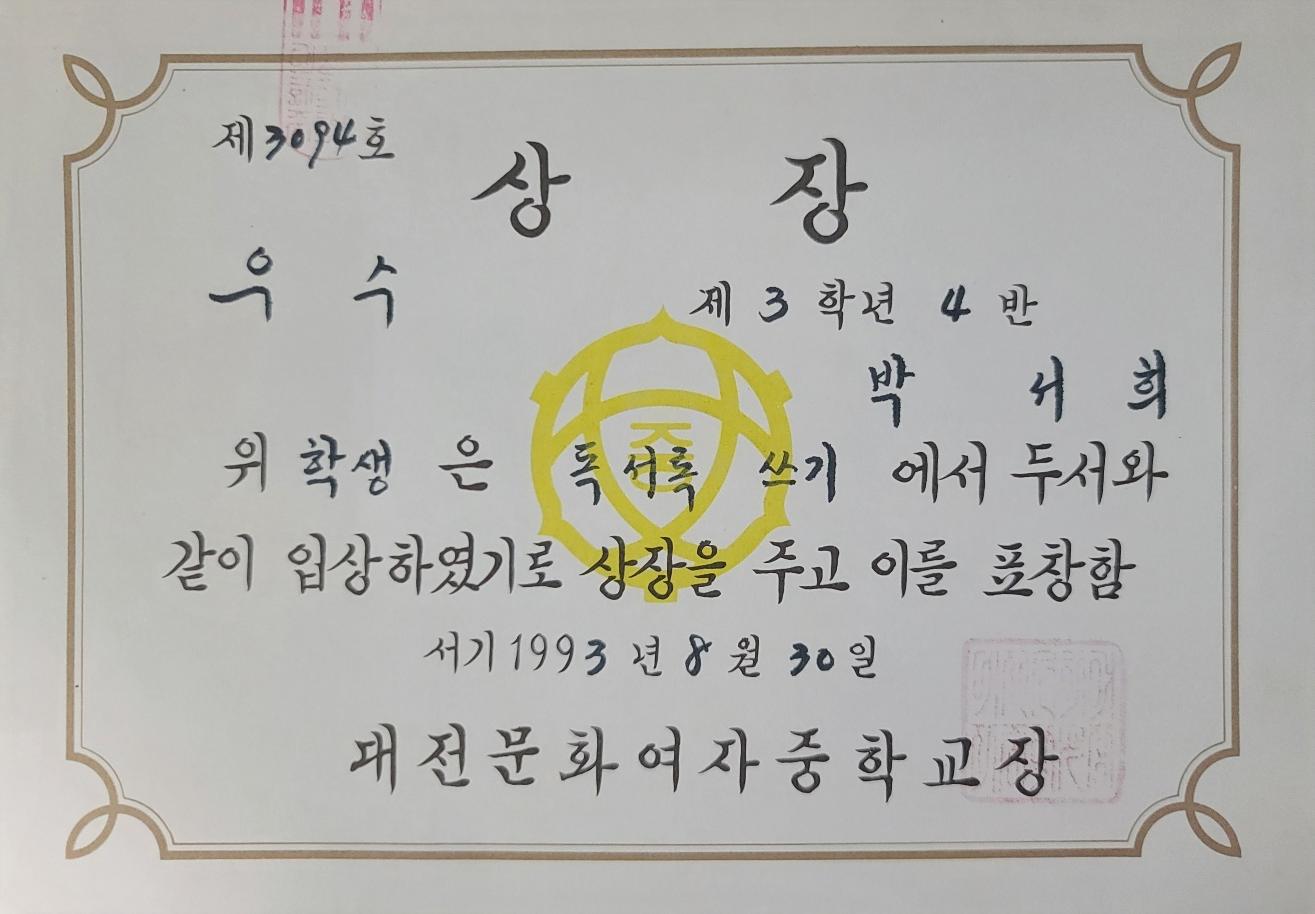 제3094호
상 장
우 수
제 3 학년 4 반
박 서 희
위 학생 은 독서록 쓰기 에서 두서와
같이 입상하였기로 상장을 주고 이를 표창함
서기1993년 8월 30일
대전문화여자중학교장